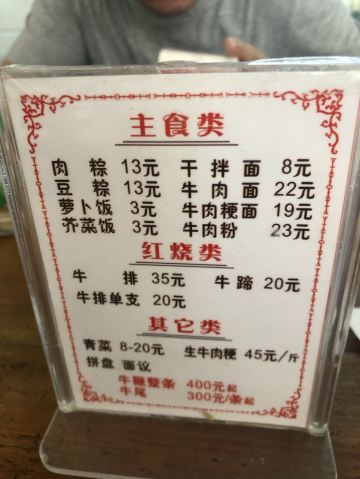 主食类
肉粽 13元 干拌面 8元
豆粽 13元 牛肉面 22元
萝卜饭 3元 牛肉粳面 19元
芥菜饭 3元 牛肉粉 23元
红烧类
牛排 35元 牛蹄 20元
牛排单支 20元
其它类
青菜 8-20元 生牛肉粳 45元/斤
拼盘 面议
牛鞭整条 400元起
牛尾 300元/条起